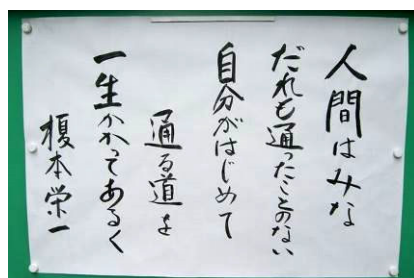 人間はみな
だれも通ったことのない
自分がはじめて
通る道を
一生かかってあるく
榎本栄一